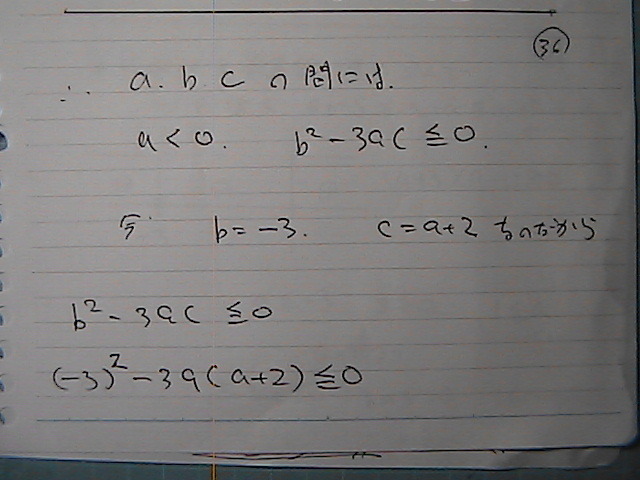 36
∴ a. b. c の間には.
a < 0. b² - 3ac ≦ 0.
b = -3. c = a+2 なのだから
b² - 3ac ≦ 0
(-3)² - 3a(a+2) ≦ 0